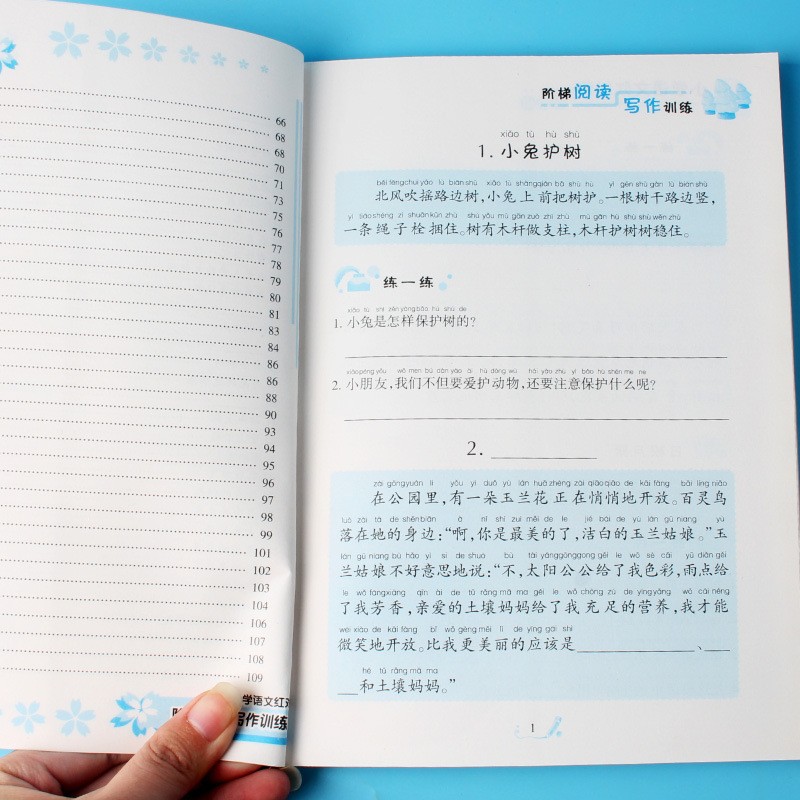 66
68
68
70
71
73
75
76
77
78
79
80
81
83
84
86
86
88
90
93
94
95
96
97
98
99
101
102
103
104
106
107
108
109
学语文红
写作训练
阶梯阅读
写作训练
xiǎo tù hù shù
1. 小兔护树
běi fēng chuī yáo lù biān shù xiǎo tù shàng qián bǎ shù hù yì gēn shù gàn lù biān shù
北风吹摇路边树,小兔上前把树护。一根树干路边竖,
yì tiáo shéng zi shuān kǔn zhù shù yǒu mù gān zuò zhī zhù mù gān hù shù shù wěn zhù
一条绳子栓捆住。树有木杆做支柱,木杆护树树稳住。
练一练
xiǎo tù shì zěn yàng bǎo hù shù de
1. 小兔是怎样保护树的?
xiǎo péng yǒu wǒ men bú dàn yào ài hù dòng wù hái yào zhù yì bǎo hù shén me ne
2. 小朋友,我们不但要爱护动物,还要注意保护什么呢?
2. ____________
zài gōng yuán lǐ yǒu yì duǒ yù lán huā zhèng zài qiāo qiāo de kāi fàng bǎi líng niǎo
在公园里,有一朵玉兰花正在悄悄地开放。百灵鸟
luò zài tā de shēn biān à nǐ shì zuì měi de le jié bái de yù lán gū niang yù
落在她的身边:“啊,你是最美的了,洁白的玉兰姑娘。”玉
lán gū niang bù hǎo yì si de shuō bù tài yáng gōng gong gěi le wǒ sè cǎi yǔ diǎn gěi
兰姑娘不好意思地说:“不,太阳公公给了我色彩,雨点给
le wǒ fāng xiāng qīn ài de tǔ rǎng mā ma gěi le wǒ chōng zú de yíng yǎng wǒ cái néng
了我芳香,亲爱的土壤妈妈给了我充足的营养,我才能
wēi xiào de kāi fàng bǐ wǒ gèng měi lì de yīng gāi shì
微笑地开放。比我更美丽的应该是____________、___
hé tǔ rǎng mā ma
__和土壤妈妈。”
1